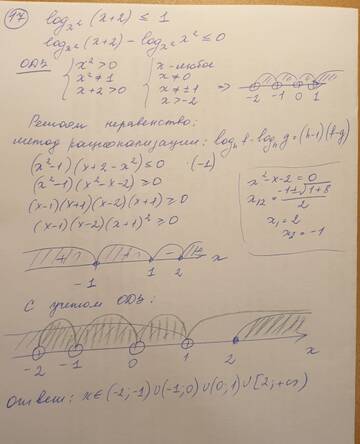 17 log_{x²}(x+2) ≤ 1
log_{x²}(x+2) - log_{x²} x² ≤ 0
ОДЗ { x² > 0 { x - любое
x² ≠ 1 x ≠ 0
x+2 > 0 x ≠ ±1
x > -2
=> -2 -1 0 1
Решаем неравенство:
метод рационализации: log_h f - log_h g = (h-1)(f-g)
(x²-1)(x+2-x²) ≤ 0 (-1)
(x²-1)(x²-x-2) ≥ 0
(x-1)(x+1)(x-2)(x+1) ≥ 0
(x-1)(x-2)(x+1)² ≥ 0
x²-x-2=0
x_{1,2} = (-1±√1+8)/2
x₁ = 2
x₂ = -1
+ + - + x
-1 1 2
С учетом ОДЗ:
-2 -1 0 1 2 x
Ответ: x∈(-2;-1)∪(-1;0)∪(0;1)∪[2;+∞)